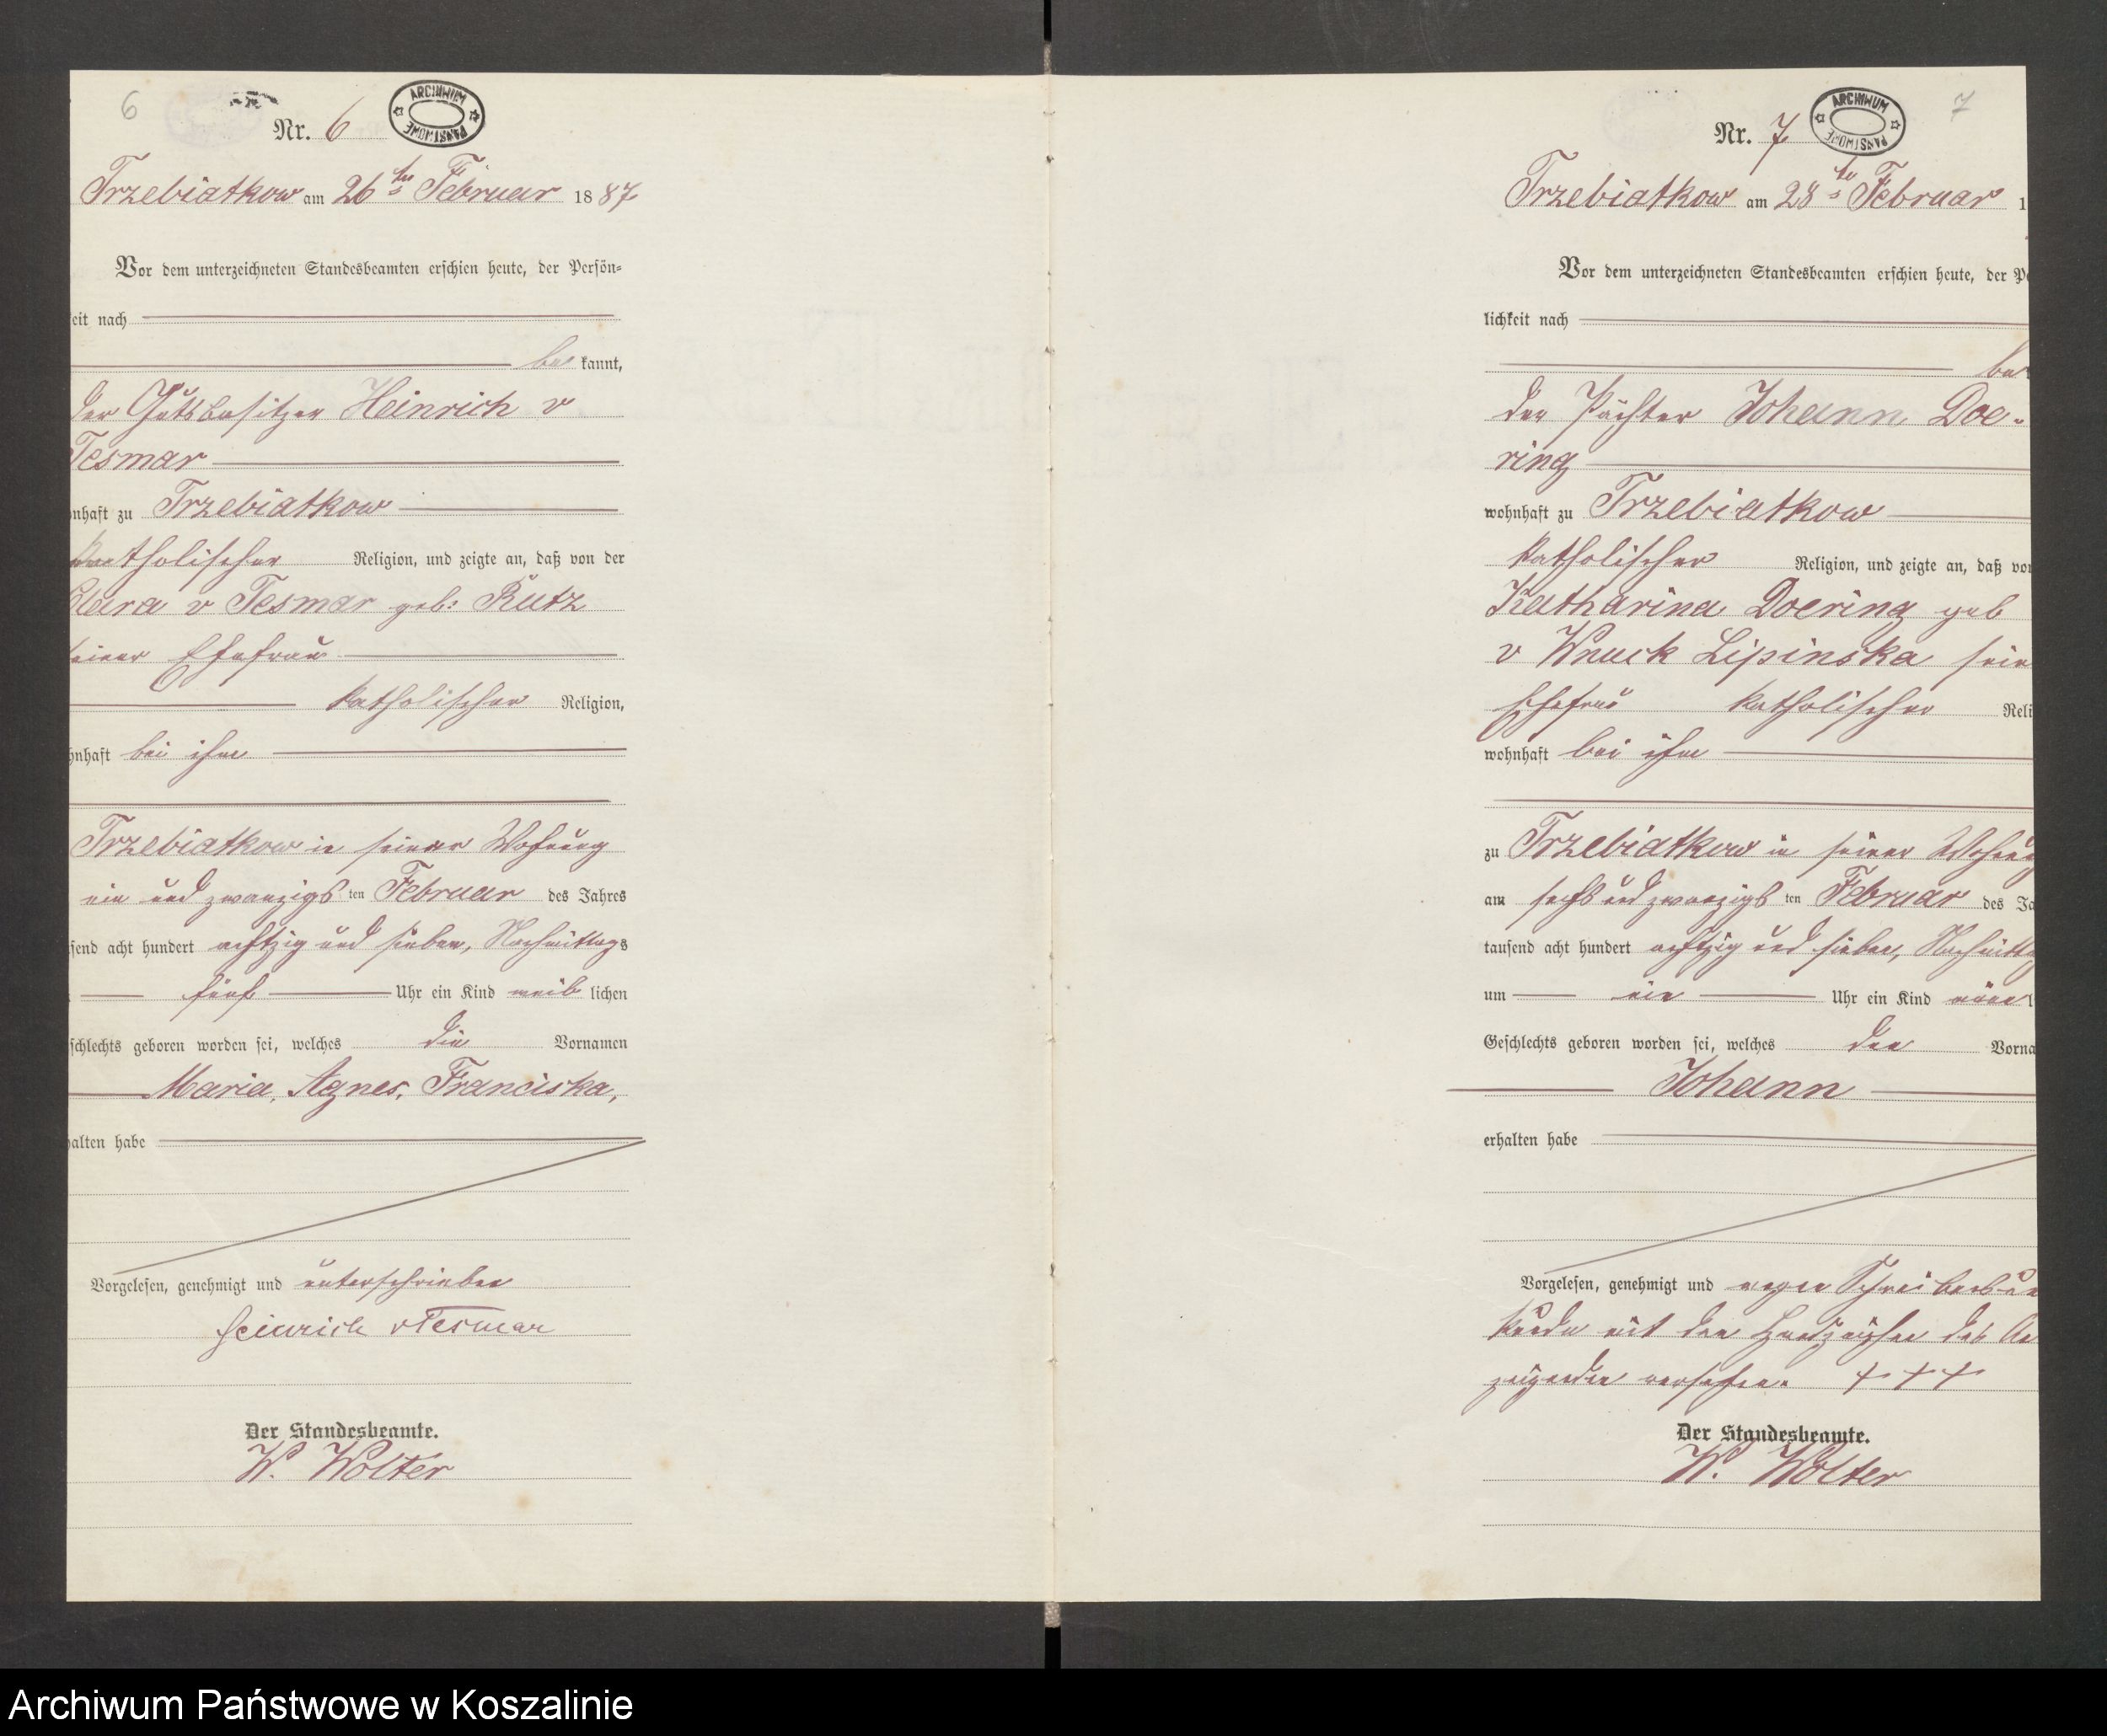 6
Nr. 6
ARCHIWUM PAŃSTWOWE
Trzebiatkow am 26ten Februar 1887
Vor dem unterzeichneten Standesbeamten erschien heute, der Persön=
keit nach
be kannt,
der Gutsbesitzer Heinrich v
Tesmar
nhaft zu Trzebiatkow
katholischer Religion, und zeigte an, daß von der
Clara v Tesmar geb: Kutz
seiner Ehefrau
katholischer Religion,
hnhaft bei ihm
Trzebiatkow in seiner Wohnung
ein und zwanzigs ten Februar des Jahres
send acht hundert achtzig und sieben, Nachmittags
fünf Uhr ein Kind weib lichen
schlechts geboren worden sei, welches die Vornamen
Maria, Agnes, Franciska,
halten habe
Vorgelesen, genehmigt und unterschrieben
Heinrich vTesmar
Der Standesbeamte.
W. Wolter
7
Nr. 7
ARCHIWUM PAŃSTWOWE
Trzebiatkow am 28ten Februar 1
Vor dem unterzeichneten Standesbeamten erschien heute, der Pe
lichkeit nach
be
der Pächter Johann Doe-
ring
wohnhaft zu Trzebiatkow
katholischer Religion, und zeigte an, daß von
Katharina Doering geb
v Wnuck Lipinska sein
Ehefrau katholischer Reli
wohnhaft bei ihm
zu Trzebiatkow in seiner Wohnung
am sechs und zwanzigs ten Februar des Ja
tausend acht hundert achtzig und sieben, Nachmitta
um ein Uhr ein Kind männ l
Geschlechts geboren worden sei, welches den Vorna
Johann
erhalten habe
Vorgelesen, genehmigt und wegen Schreibensun
kunde mit den Handzeichen des An
zeigenden versehen. + + +
Der Standesbeamte.
W. Wolter
Archiwum Państwowe w Koszalinie